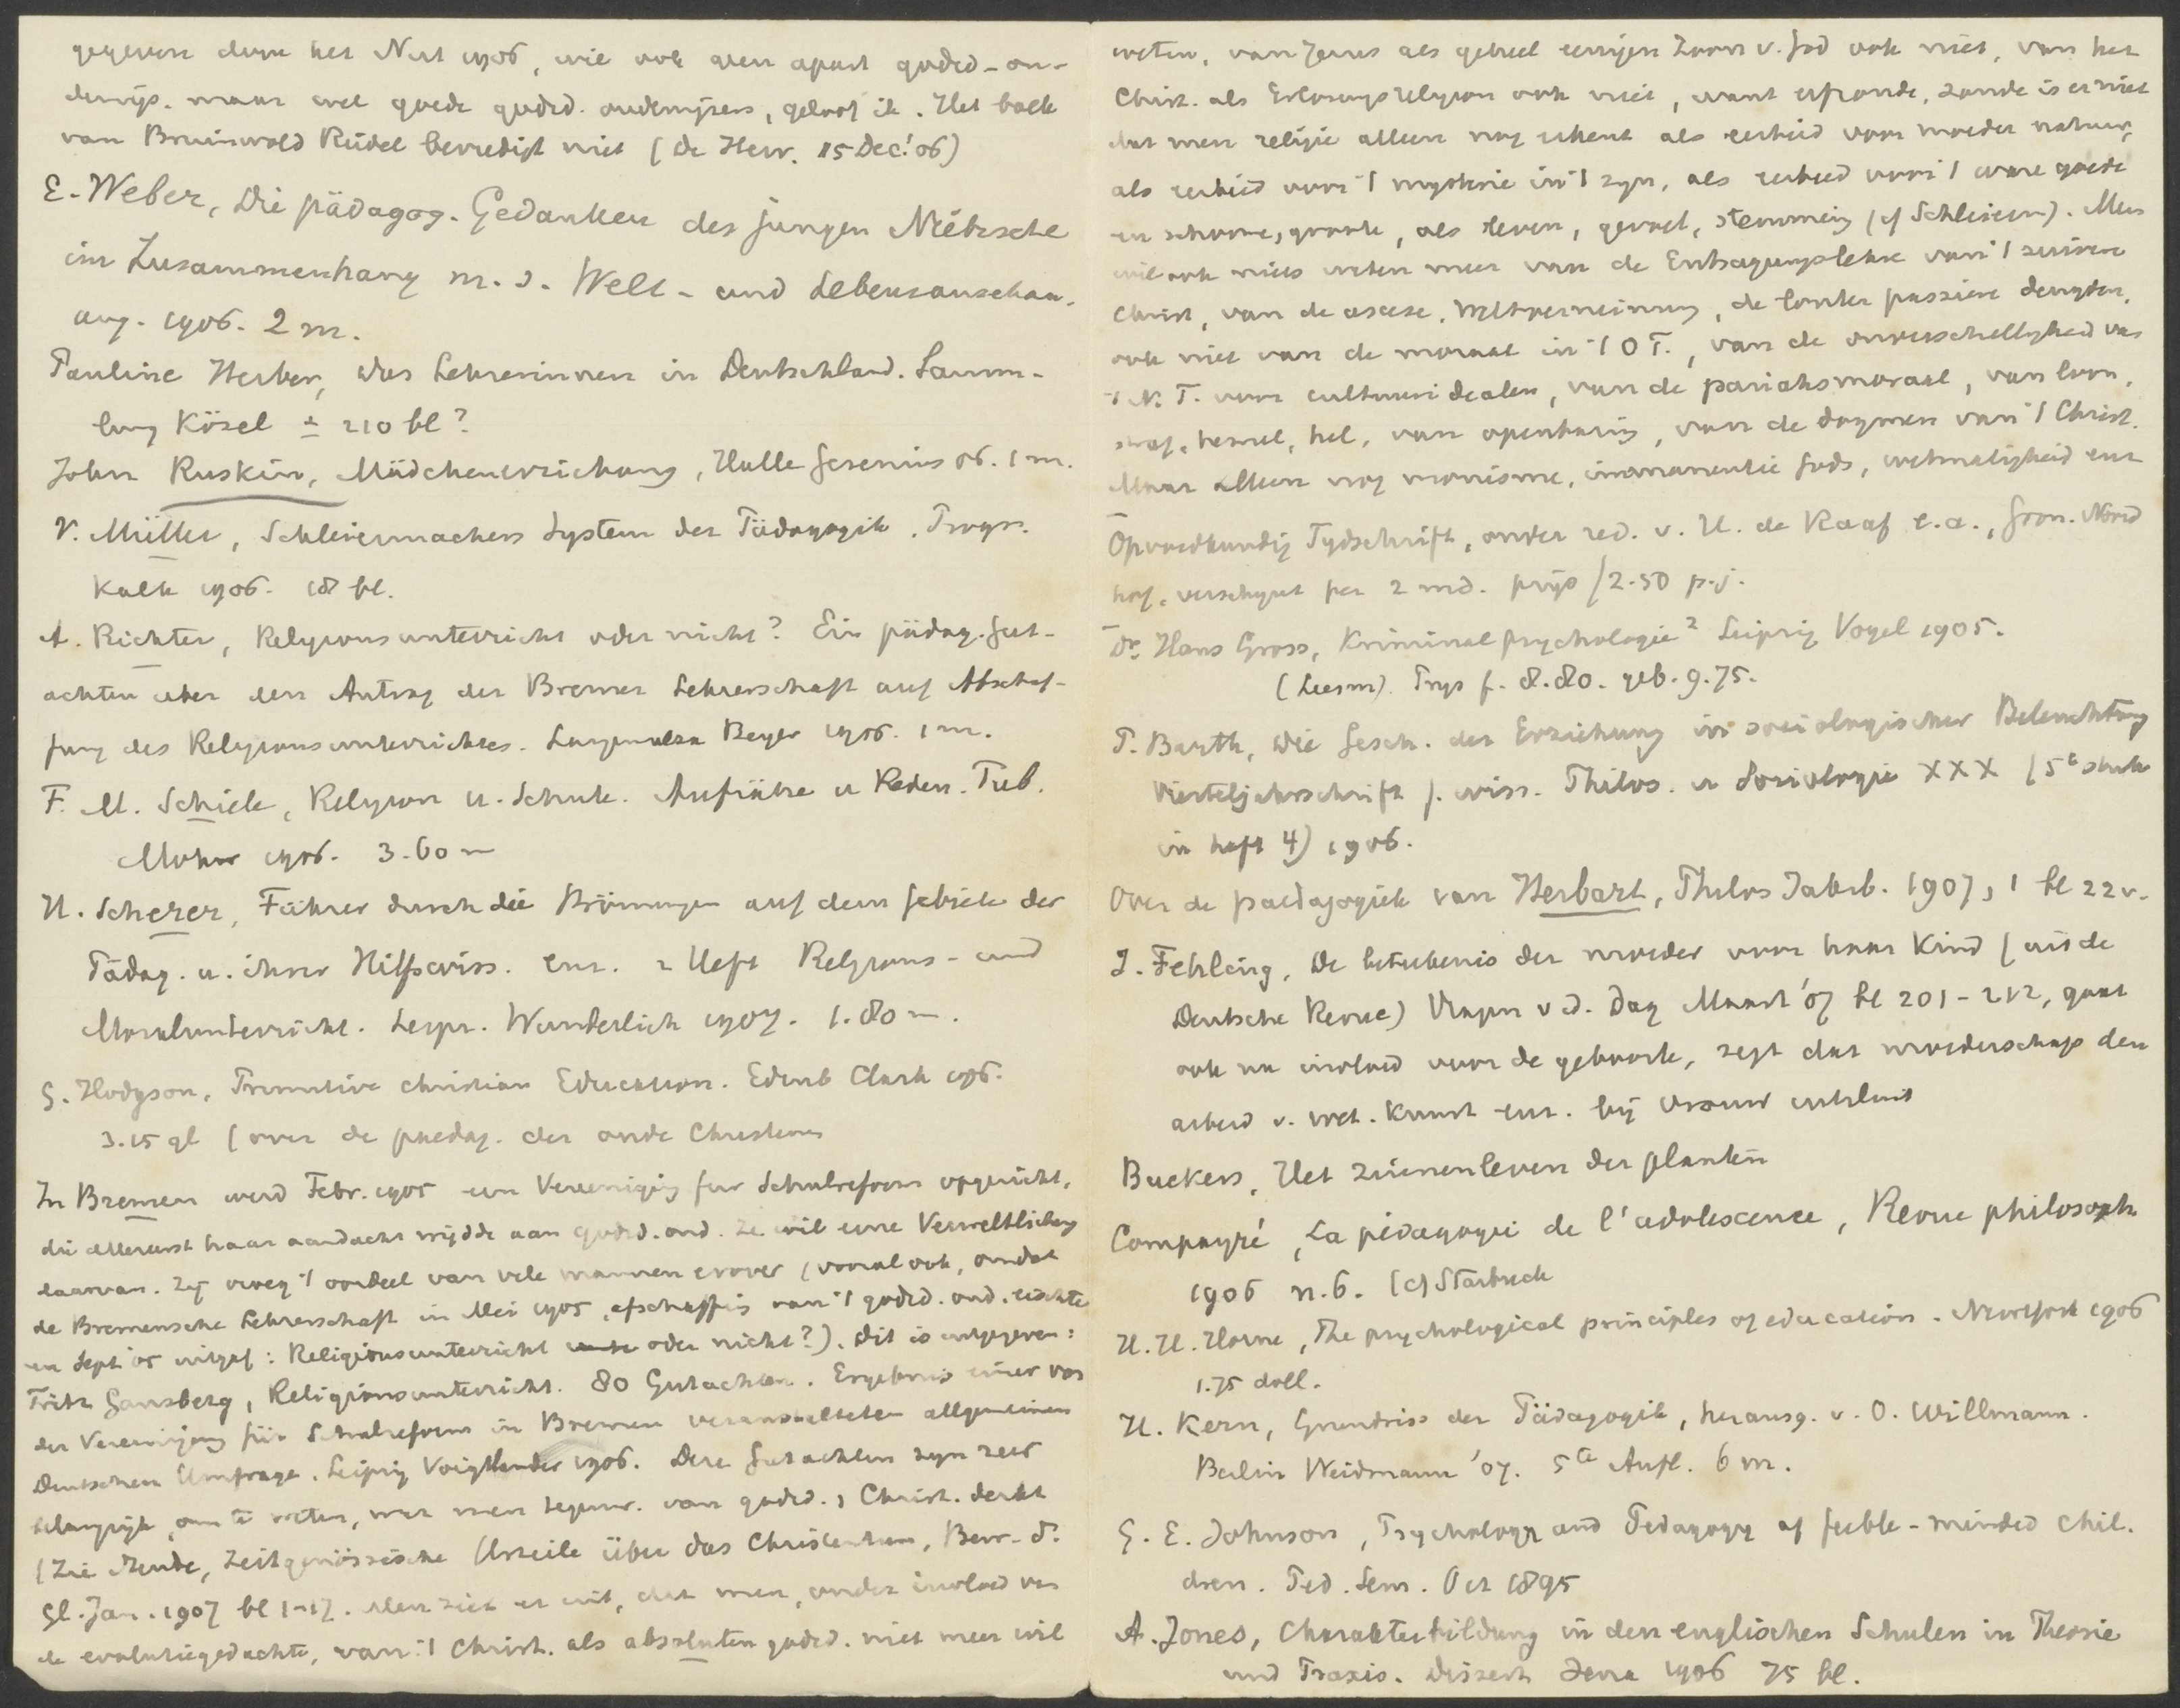 gegeven door het Nut 1906, wie ook geen apart godsd-on-
derwijs. maar wel goede godsd. onderwijzers, geloof ik. Het boek
van Bruinwold Riedel bevredigt niet (De Her. 15 Dec. '06)
E. Weber, Die pädagog. Gedanken des jungen Nietzsche
im Zusammenhang m. s. Welt- und Lebensanschau-
ung. 1906. 2 m.
Pauline Herber, Das Lehrerinnen in Deutschland. Samm-
lung Kösel ± 210 bl?
John Ruskin, Mädchenerziehung, Halle Gesenius 06. 1 m.
V. Müller, Schleiermachers System der Pädagogik. Progr.
Kalk 1906. 18 bl.
A. Richter, Religionsunterricht oder nicht? Ein pädag. Gut-
achten über den Antrag der Bremer Lehrerschaft auf Abschaf-
fung des Religionsunterrichtes. Langensalza Beyer 1906. 1 m.
F. M. Schiele, Religion u. Schule. Aufsätze u Reden. Tub.
Mohr 1906. 3.60 m
H. Scherer, Führer durch die Strömungen auf dem Gebiete der
Pädag. u. ihrer Hilfswiss. enz. 2 Heft Religions- und
Moralunterricht. Leipz. Wunderlich 1907. 1.80 m.
G. Hodgson, Primitive Christian Education. Edinb Clark 1906.
3.15 gl (over de paedag. der oude Christenen
In Bremen werd Febr. 1905 een Vereinigung fur Schulreform opgericht,
die allereerst haar aandacht wijdde aan godsd. ond. Ze wil eene Verweltlichung
daarvan. Zij vroeg 't oordeel van vele mannen erover (vooral ook, omdat
de Bremensche Lehrerschaft in Mei 1905, afschaffing van 't godsd. ond. eischte
en Sept '05 uitgaf: Religionsunterricht oder nicht?). Dit is uitgegeven:
Fritz Gansberg, Religionsunterricht. 80 Gutachten. Ergebnis einer von
der Vereinigung für Schulreform in Bremen veranstalteten allgemeinen
Deutschen Umfrage. Leipzig Voigtlander 1906. Deze Gutachten zijn zeer
belangrijk, om te weten, wat men tegenw. van godsd., Christ. denkt
(Zie Zeitgenössische Urteile über das Christentum, Bew. d.
Gl. Jan. 1907 bl 1-17. Men ziet er uit, dat men, onder invloed van
de evolutiegedachte, van 't Christ. als absoluten godsd. niet meer wil
weten, van Jezus als geheel eenigen Zoon v. God ook niet, van het
Christ. als Erlösungsreligion ook niet, want erfzonde, zonde is er niet
dat men religie alleen nog erkent als eerbied voor moeder natuur,
als eerbied voor 't mysterie in 't zijn, als eerbied voor 't ware goede
en schoone, groote, als leven, gevoel, stemming (cf Schleierm). Men
wil ook niets weten meer van de Entsagungslehre van 't zuivere
Christ, van de ascese, Weltverneinung, de louter passieve deugden,
ook niet van de moraal in 't O T., van de onverschilligheid van
't N. T. voor cultuuridealen, van de pariahsmoraal, van loon,
straf, hemel, hel, van openbaring, van de dogmen van 't Christ.
Maar alleen nog monisme, immanentie Gods, wetmatigheid enz
Opvoedkundig Tijdschrift, onder red. v. H. de Raaf e.a., Gron. Noord
hof, verschijnt per 2 md. prijs f 2.50 p. j.
Dr. Hans Gross, Kriminalpsychologie² Leipzig Vogel 1905.
(Leesm). Prijs f. 8.80. geb. 9.75.
P. Barth, Die Gesch. der Erziehung in soziologischer Beleuchtung
Vierteljahrsschrift f. wiss. Philos. u Soziologie XXX (5e stuk
in heft 4) 1906.
Over de paedagogiek van Herbart, Philos Jahrb. 1907, 1 bl 22 v.
J. Fehling, De beteekenis der moeder voor haar Kind (uit de
Deutsche Revue) Vragen v d. Dag Maart '07 bl 201-212, gaat
ook na invloed voor de geboorte, zegt dat moederschap den
arbeid v. wet. kunst enz. bij vrouw uitsluit
Buekers, Het zinnenleven der planten
Compayré, La pédagogie de l'adolescence, Revue philosoph
1906 n. 6. (cf Starbuck
H. H. Horne, The psychological principles of education. New York 1906
1.75 doll.
H. Kern, Grundriss der Pädagogik, herausg. v. O. Willmann.
Berlin Weidmann '07. 5te Aufl. 6 m.
G. E. Johnson, Psychology and Pedagogy of feeble-minded chil-
dren. Ped. Sem. Oct 1895
A. Jones, Charakterbildung in den englischen Schulen in Theorie
und Praxis. Dissert Jena 1906 75 bl.